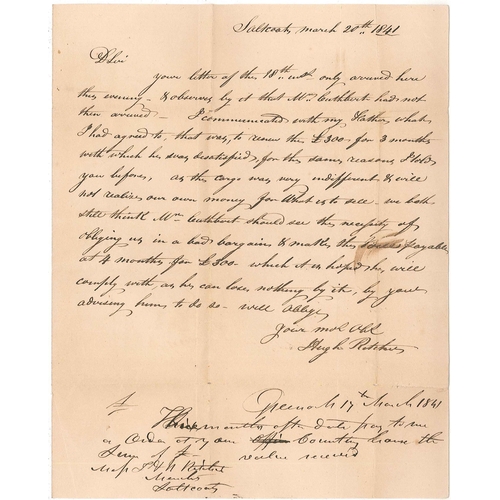 Saltcoats march 20th 1841
D Sir
your letter of the 18th inst only arrived here
this evening - & observes by it that Mr Cuthbert had not
then arrived - I communicated with my Father, what
I had agreed to, that was, to renew the £300 - for 3 months
with which he was disatisfied, for the same reasons I told
you before, as the cargo was very indifferent & will
not realize our own money for What is to sell. we both
still think Mr Cuthbert should see the necessity of
obliging us in a bad bargain & make the payable
at 4 months for £300 - which it is hoped he will
comply with, as he can lose nothing by it, by your
advising him to do so - will oblige
Your mo Obt
Hugh
Greenock 17th March 1841
months after date pay to me
or Order at your Counting house the
Sum of value received
Messrs
Saltcoats